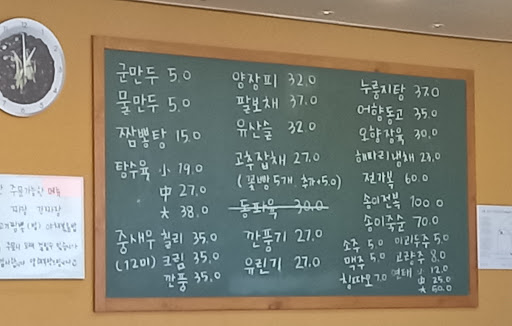 군만두 5.0
물만두 5.0
짬뽕탕 15.0
탕수육 小 19.0
中 27.0
大 38.0
중새우 칠리 35.0
(12미) 크림 35.0
깐풍 35.0
양장피 32.0
팔보채 37.0
유산슬 32.0
고추잡채 27.0
(꽃빵 5개, 추가 +5.0)
동파육 30.0
깐풍기 27.0
유린기 27.0
누룽지탕 37.0
어향동고 35.0
오향장육 30.0
해파리냉채 23.0
전가복 60.0
송이전복 100.0
송이죽순 70.0
소주 5.0 이과두주 5.0
맥주 5.0 고량주 8.0
칭따오 7.0 연태 小 12.0
中 25.0
大 50.0
주문가능한 메뉴